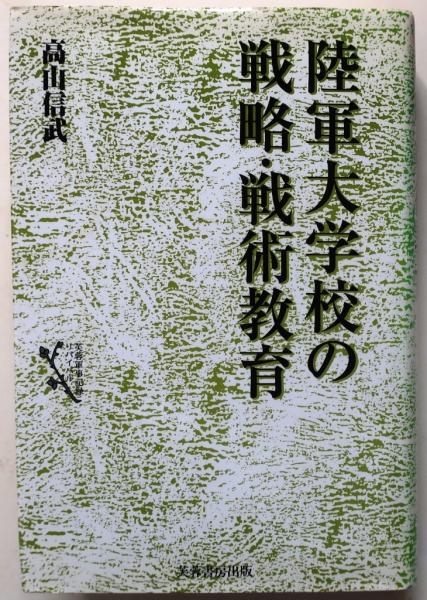 陸軍大学校の
戦略・戦術教育
高山信武
芙蓉書房出版